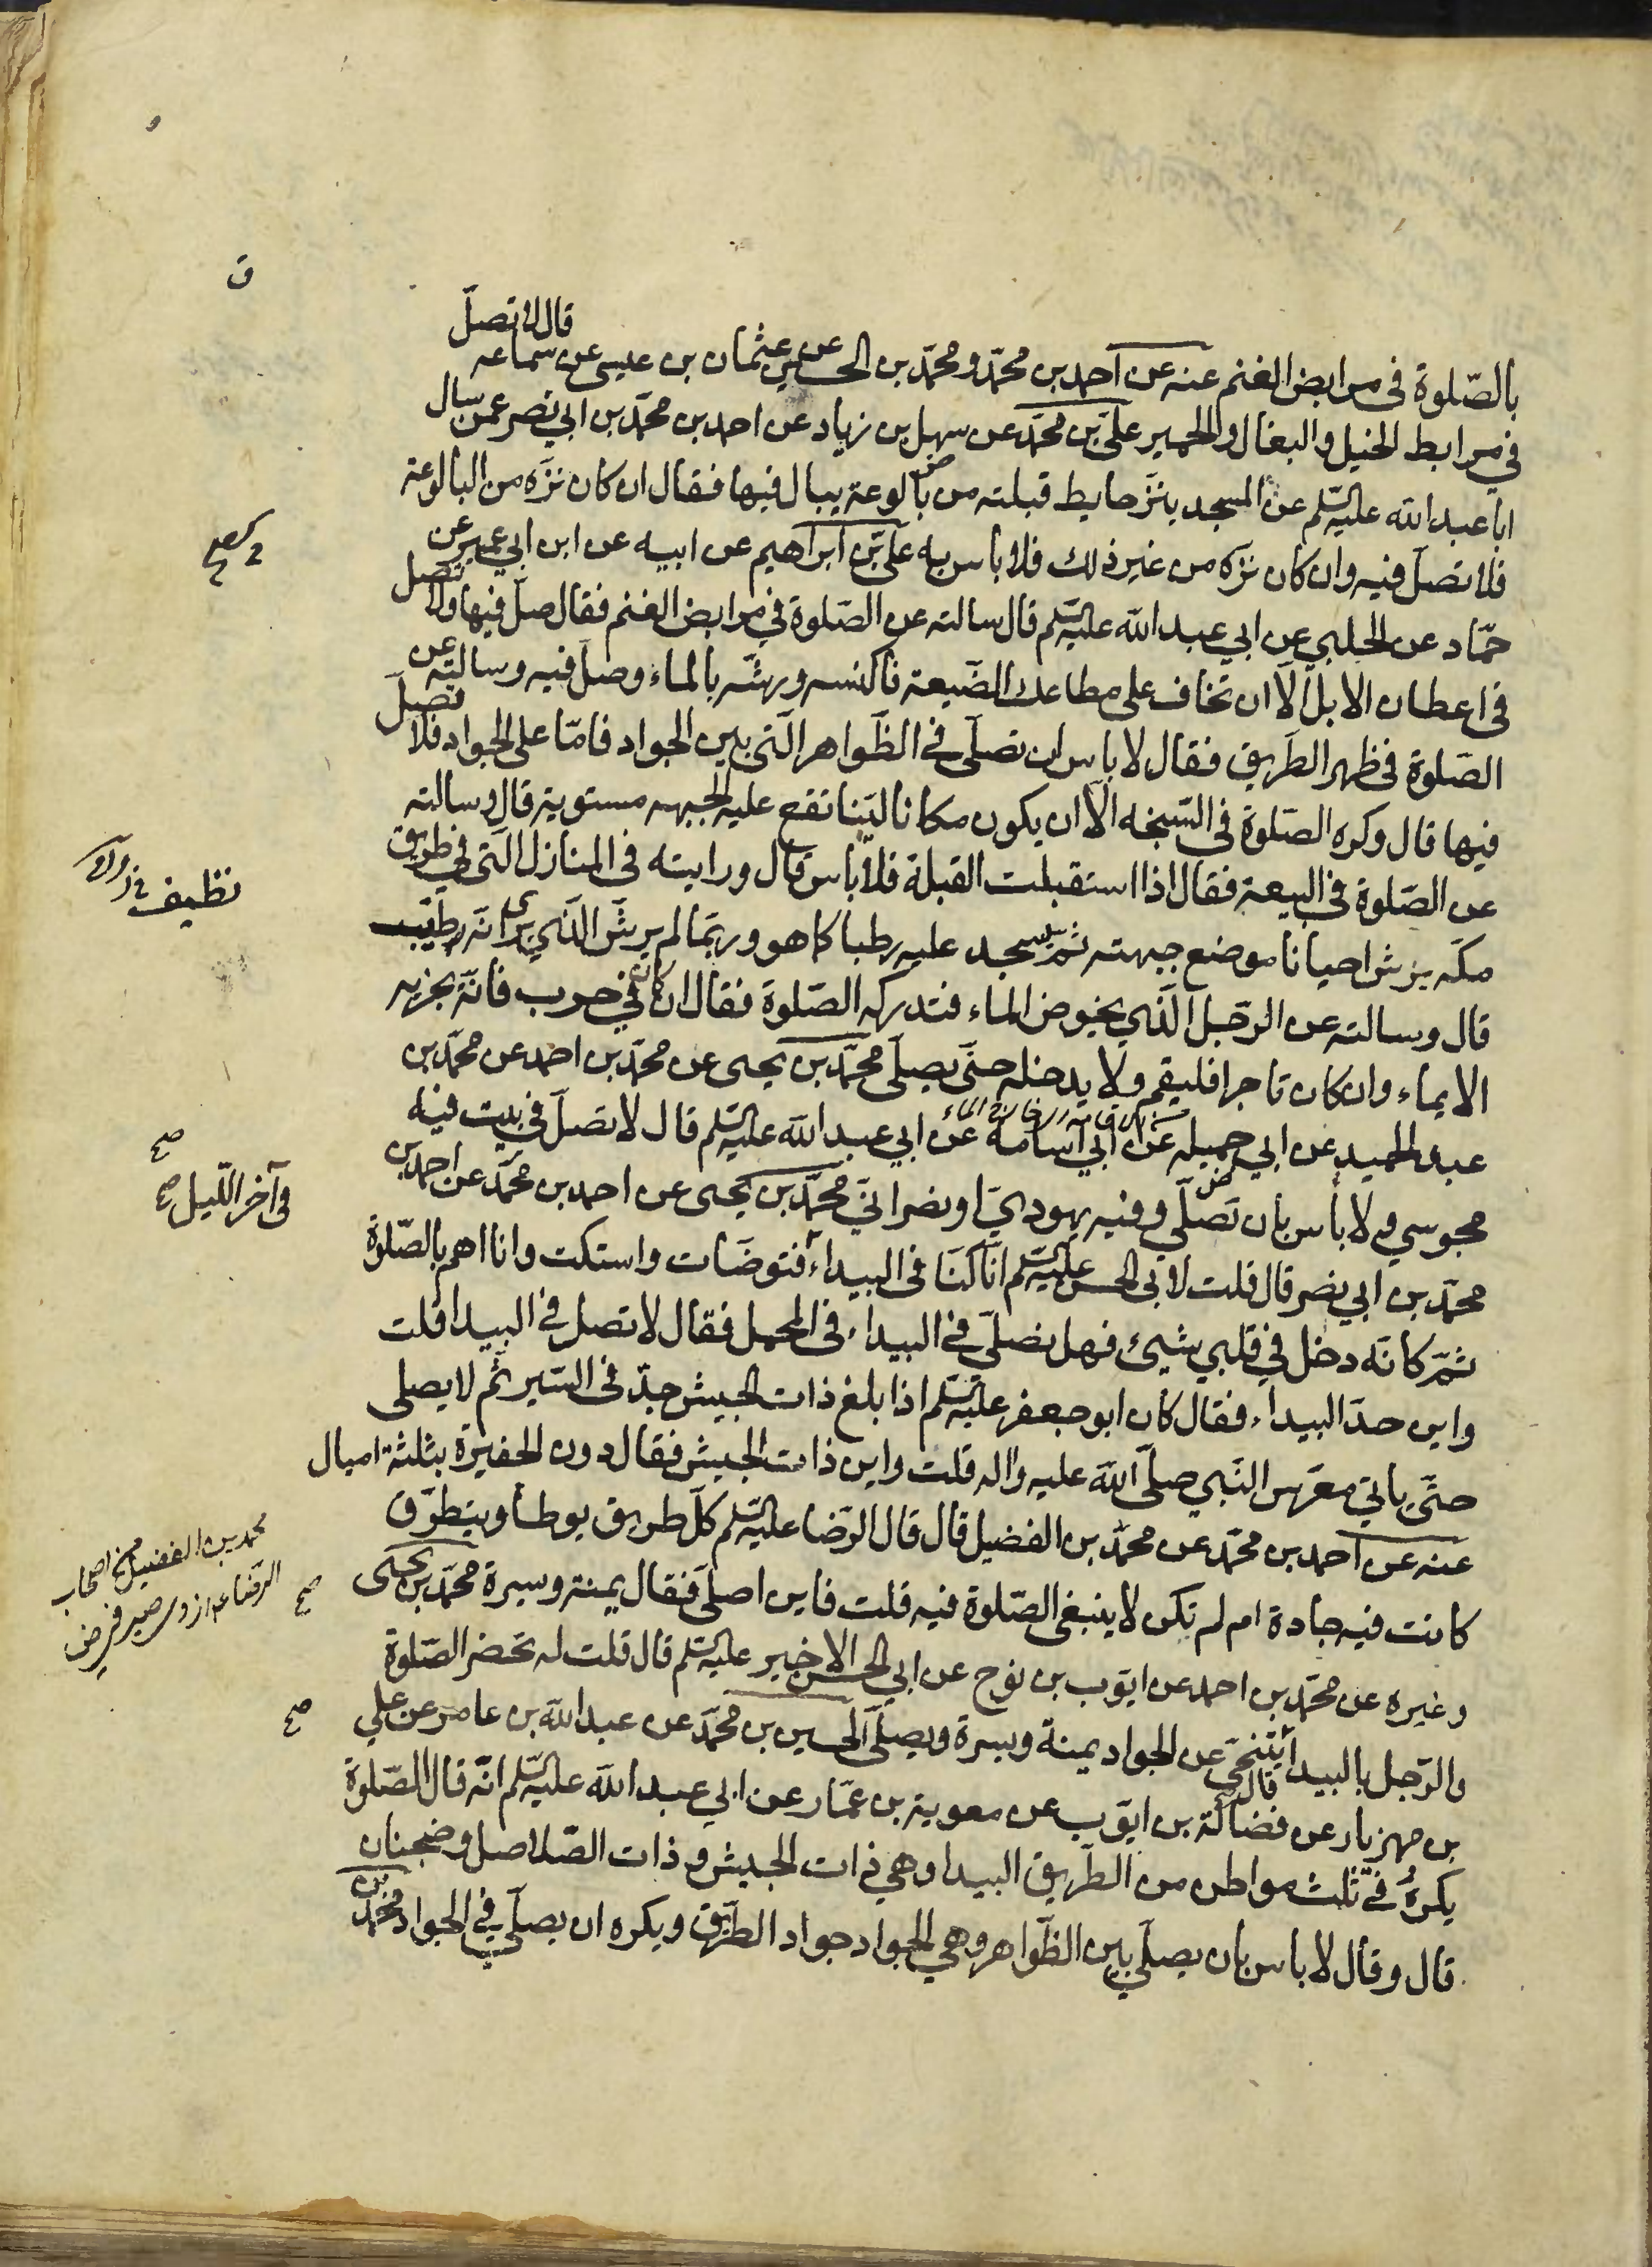 بالصّلوة في مرابض الغنم عنه عن احمد بن محمّد ومحمّد بن الحسين عن عثمان بن عيسى عن سماعه قال لا تصلّ
في مرابط الخيل والبغال والحمير علىّ بن محمّد عن سهل بن زياد عن احمد بن محمّد بن ابي نصر عمن سال
ابا عبد الله عليه السّلم عن المسجد ينزّ حايط قبلته من بالوعة يبال فيها فقال ان كان نزّه من البالوعة
فلا تصلّ فيه وان كان نزّه من غير ذلك فلا باس به علىّ بن ابراهيم عن ابيه عن ابن ابي عمير عن
حمّاد عن الحلبي عن ابي عبد الله عليه السّلم قال سالته عن الصّلوة في مرابض الغنم فقال صلّ فيها ولا تصل
في اعطان الابل الّا ان تخاف على متاعك الضّيعة فاكنسه ورشّه بالماء وصلّ فيه وسالته عن
الصّلوة في ظهر الطّريق فقال لا باس ان تصلّى في الظّواهر الّتي بين الجواد فامّا على الجواد فلا تصلّ
فيها قال وكره الصّلوة في السّبخه الّا ان يكون مكانا ليّنا تقع عليه الجبهه مستوية قال وسالته
عن الصّلوة في البيعة فقال اذا استقبلت القبلة فلا باس قال ورايته في المنازل الّتي في طريق
مكّه يرش احيانا موضع جبهته ثمّ يسجد عليه رطبا كما هو وربّما لم يرشّ الّذي يرى انّه رطيب
قال وسالته عن الرّجل الّذي يخوض الماء فتدركه الصّلوة فقال ان كان في حرب فانّه يجزيه
الايماء وان كان تاجرا فليقم ولا يدخله حتّى يصلّى محمّد بن يحيى عن محمّد بن احمد عن محمّد بن
عبد الحميد عن ابي جميله عن ابي اسامة عن ابي عبد الله عليه السّلم قال لا تصلّ في بيت فيه
مجوسي ولا بأس بان تصلّي وفيه يهوديّ او نصرانيّ محمّد بن يحيى عن احمد بن محمّد عن احمد بن
محمّد بن ابي نصر قال قلت لابي الحسن عليه السّلم انّا كنّا في البيداء فتوضّات واستكت وانا اهم بالصّلوة
ثمّ كانّه دخل في قلبي شيئ فهل نصلّى في البيداء في المحمل فقال لا تصل في البيدا قلت
واين حدّ البيداء فقال كان ابو جعفر عليه السّلم اذا بلغ ذات الجيش جدّ في السّير ثم لا يصلى
حتّى ياتي معرّس النّبي صلّى الله عليه واله قلت واين ذات الجيش فقال دون الحفيرة بثلثة اميال
عنه عن احمد بن محمّد عن محمّد بن الفضيل قال قال الرّضا عليه السّلم كلّ طريق يوطأ ويتطرّق
كانت فيه جادة ام لم تكن لا ينبغى الصّلوة فيه قلت فاين اصلّى فقال يمنة ويسرة محمّد بن يحيى
وغيره عن محمّد بن احمد عن ايّوب بن نوح عن ابي الحسن الاخير عليه السّلم قال قلت له تحضر الصّلوة
والرّجل بالبيدا قال يتنحّى عن الجواد يمنة ويسرة ويصلّى الحسين بن محمّد عن عبد الله بن عامر عن علي
بن مهزيار عن فضالة بن ايّوب عن معوية بن عمّار عن ابي عبد الله عليه السّلم انّه قال الصّلوة
يكرهُ في ثلث مواطن من الطّريق البيدا وهي ذات الجيش وذات الصّلاصل وضجنان
قال وقال لا باس بان يصلّي بين الظّواهر وهي الجواد جواد الطّريق ويكره ان يصلّي في الجواد محمّد بن
ق
نظيف
صح
في آخر اللّيل صح
محمد بن الفضيل من اصحاب
الرّضا
صح
صح